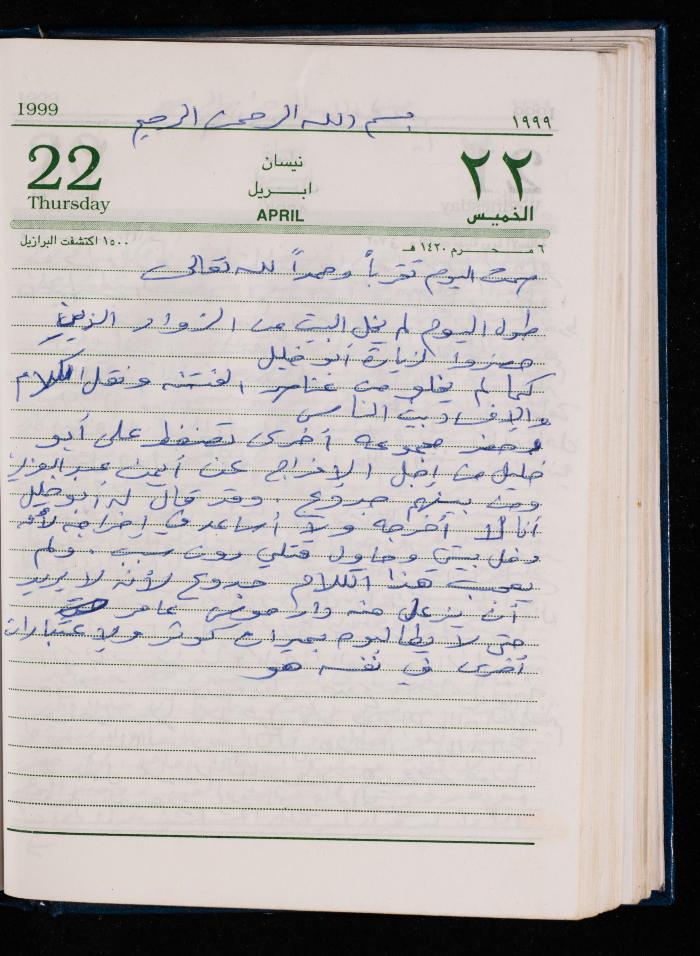 1999
١٩٩٩
بسم الله الرحمن الرحيم
22
Thursday
نيسان
ابريل
APRIL
٢٢
الخميس
١٥٠٠ اكتشفت البرازيل
٦ محرم ١٤٢٠ هـ
صمت اليوم تقرباً وحمداً لله تعالى
طول اليوم لم يخل البيت من الزوار الذين
حضروا لزيارة أبو خليل
كما لم يخلو من عناصر الفتنة ونقل الكلام
والإفساد بين الناس
وحضر مجموعه أخرى تضغط على أبو
خليل من اجل الإفراج عن أيمن عبد العزيز
ومن بينهم جدوع . وقد قال له أبو خليل
أنا لا أخرجه ولا أساعد في إخراجه لأنه
دخل بيتي وحاول قتلي دون سبب . ولم
يعجب هذا الكلام جدوع لأنه لا يريد
أن يزعل منه دار موسى عامر
حتى لا يطالبوه بميراث كوثر ولإعتبارات
أخرى في نفسه هو